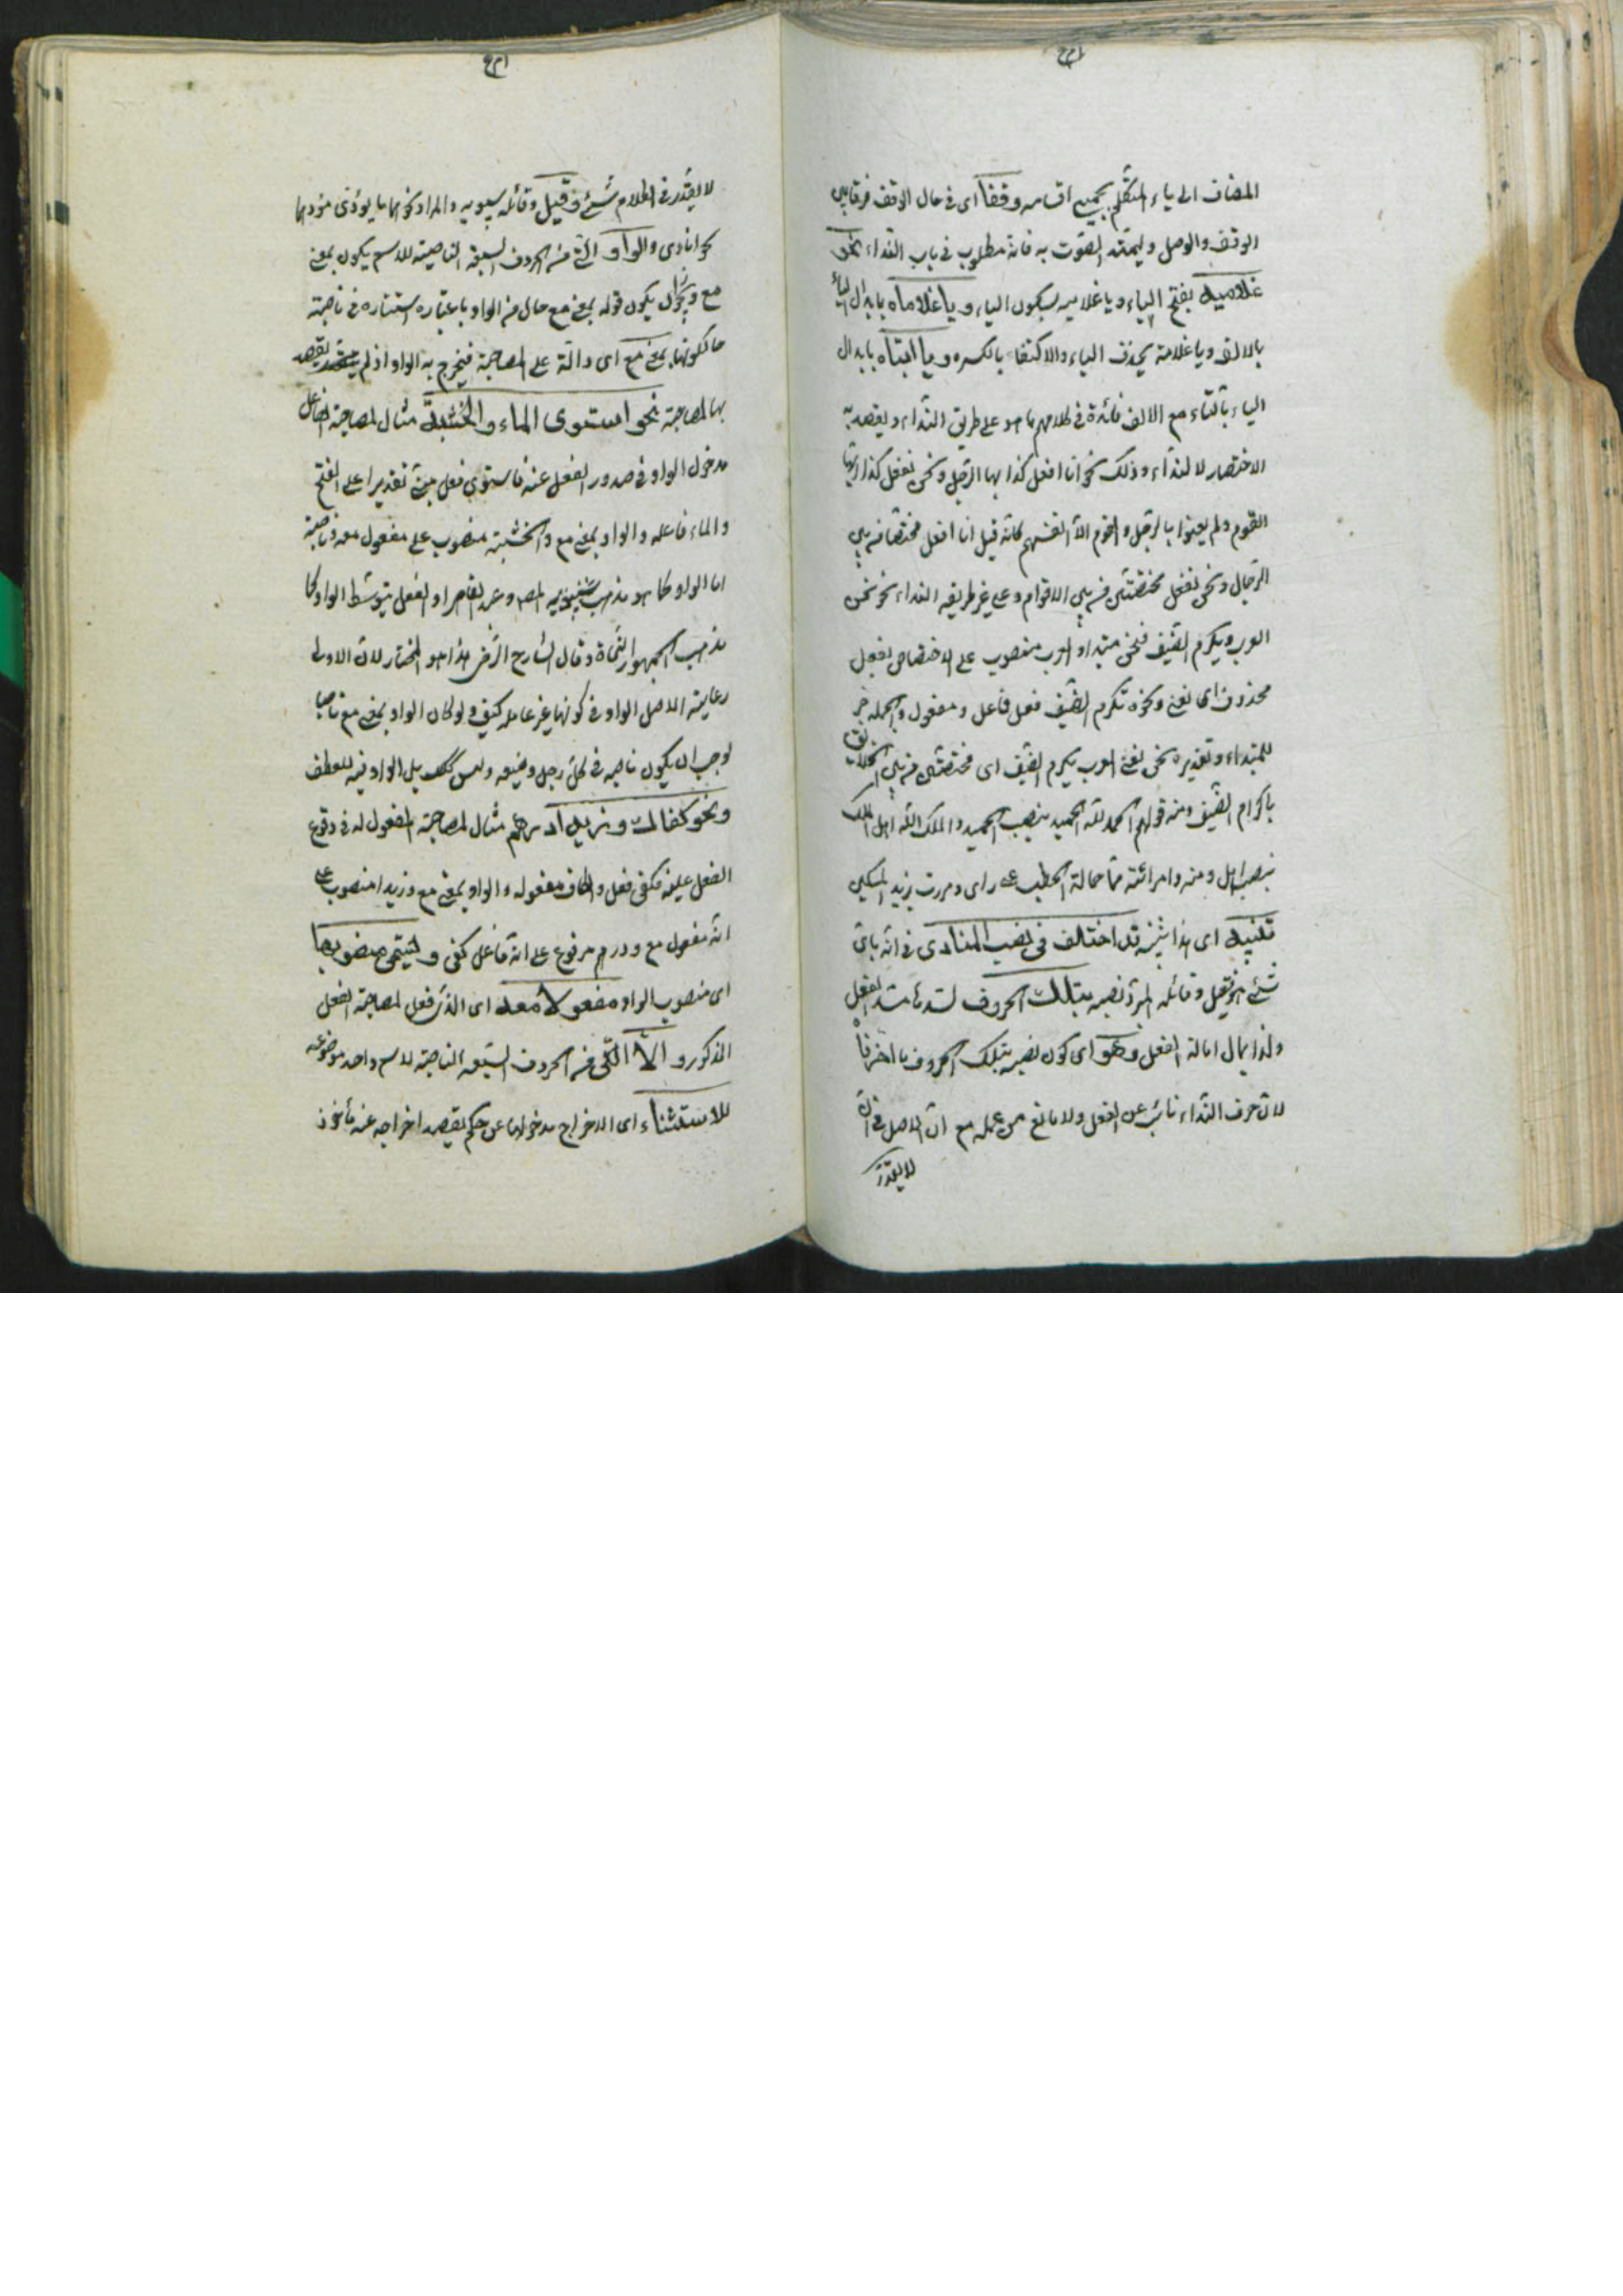 المضاف الى ياء المتكلم بجميع اقسامه وقفا اى فى حال الوقف فرقا بين
الوقف والوصل وليمتد الصوت به فانه مطلوب فى باب النداء نحو
غلاميه بفتح الياء ويا غلاميه بسكون الياء ويا غلاماه بابدال الياء
بالالف ويا غلامه بحذف الياء والاكتفاء بالكسره ويا ابتاه بابدال
الياء بالتاء مع الالف فائدة فى كلامهم ما هو على طريق النداء ويقصد به
الاختصار لا للنداء وذلك نحو انا افعل كذا ايها الرجل ونحن نفعل كذا ايتها
القوم ولم يعنوا بالرجل والقوم الا انفسهم كانه قيل انا افعل مختصا من بين
الرجال ونحن نفعل مختصين من بين الاقوام وعلى غير طريقه النداء نحو نحن
العرب نكرم الضيف فنحن مبتداء والعرب منصوب على الاختصاص بفعل
محذوف اى نعنى ونحوه نكرم الضيف فعل فاعل ومفعول والجمله خبر
للمبتداء وتقديره نحن نعنى العرب نكرم الضيف اى مختصين من بين الخلائق
باكرام الضيف ومنه قولهم الحمد لله الحميد بنصب الحميد والملك لله اهل الملك
بنصب اهل ومنه وامرأته حمالة الحطب على راى ومررت بزيد المسكين
تنبيه اى هذا تنبيه قد اختلف فى نصب المنادى فى انه باى
شئ هو فقيل وقائله المبرد نصبه بتلك الحروف لسدها مسد الفعل
ولذا يمال امالة الفعل وهو اى كون نصبه بتلك الحروف ما اخترناه
لان حرف النداء نائب عن الفعل ولا مانع من عمله مع ان الاصل فى ان
لا يقدر
لا يقدر فى الكلام شئ وقيل وقائله سيبويه والمراد كونها ما يؤدى مؤديها
نحو انادى والواو التى من الحروف السبعة الناصبة للاسم يكون بمعنى
مع ويجوز ان يكون قوله بمعنى مع حال من الواو باعتبار استتاره فى ناصبة
حالكونها بمعنى مع اى دالة على المصاحبة فيخرج به الواو اذ لم يقصد
بها المصاحبة نحو استوى الماء والخشبة مثال لمصاحبة الفاعل
مدخول الواو فى صدور الفعل عنه فاستوى فعل مبنى تقديرا على الفتح
والماء فاعله والواو بمعنى مع والخشبة منصوب على مفعول معه وناصبة
اما الواو كما هو مذهب المص وعبد القاهر او الفعل بتوسط الواو كما
مذهب الجمهور النحاة وقال الشارح الرضى هذا هو المختار لان الاولى
رعاية الاصل الواو فى كونها غير عامله كيف ولو كان الواو بمعنى مع ناصبا
لوجب ان يكون ناصبه فى كل رجل وضيعه وليس كك بل الواو فيه للعطف
ونحو كفاك وزيدا درهم مثال لمصاحبة المفعول له فى وقوع
الفعل عليه فكفى فعل والكاف مفعوله والواو بمعنى مع وزيدا منصوب على
انه مفعول مع ودرهم مرفوع على انه فاعل كفى ويسمى منصوبها
اى منصوب الواو مفعولا معه اى الذى فعل لمصاحبة الفعل
المذكور والا التى من الحروف السبعه الناصبة لاسم واحد موضوعه
للاستثناء اى الاخراج مدخولها عن حكم يقصد اخراجه عنه مأخوذ